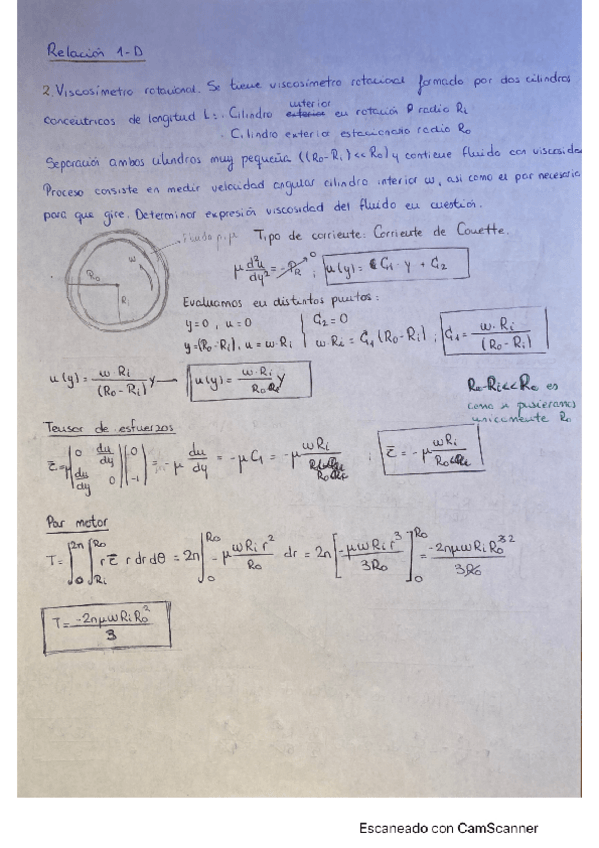 Relación 1-D
2. Viscosímetro rotacional. Se tiene viscosímetro rotacional formado por dos cilindros
concéntricos de longitud L: · Cilindro interior en rotación radio Ri
· Cilindro exterior estacionario radio Ro
Separación ambos cilindros muy pequeña ((Ro-Ri)<<Ro) y contiene fluido con viscosida
Proceso consiste en medir velocidad angular cilindro interior ω, así como el par necesario
para que gire. Determinar expresión viscosidad del fluido en cuestión.
Fluido ρ, μ
Tipo de corriente: Corriente de Couette.
Ro
ω
Ri
μ d²u/dy² = -PR → 0 ; u(y) = C1 · y + C2
Evaluamos en distintos puntos:
y=0, u=0 | C2=0
y=(Ro-Ri), u=ω·Ri | ω·Ri = C1(Ro-Ri) ; C1 = ω·Ri/(Ro-Ri)
u(y) = ω·Ri/(Ro-Ri) y → u(y) = ω·Ri/Ro y
Ro-Ri<<Ro es
como si pusieramos
unicamente Ro
Tensor de esfuerzos
τ̄ = μ |0 du/dy; du/dy 0| |0; -1| = -μ du/dy = -μC1 = -μ ωRi/Ro ; τ̄ = -μ ωRi/Ro
Par motor
T = ∫₀^2π ∫Ri^Ro r τ̄ r dr dθ = 2π ∫₀^Ro -μωRi r²/Ro dr = 2π [-μωRi r³/3Ro]₀^Ro = -2πμωRiRo³ ²/3Ro
T = -2πμωRiRo²/3
Escaneado con CamScanner